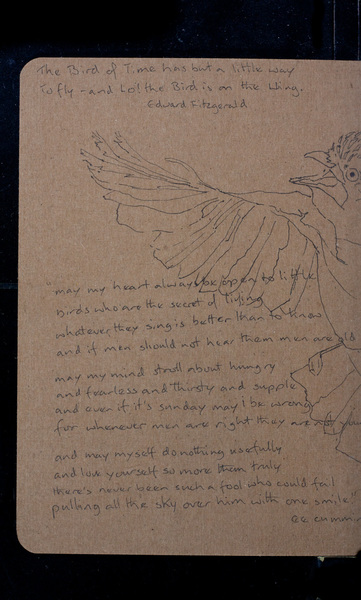 The Bird of Time has but a little way
To fly - and Lo! the Bird is on the Wing.
Edward Fitzgerald
"may my heart always be open to little
birds who are the secret of living
whatever they sing is better than to know
and if men should not hear them men are old
may my mind stroll about hungry
and fearless and thirsty and supple
and even if it's sunday may i be wrong
for whenever men are right they are not you
and may myself do nothing usefully
and love yourself so more than truly
there's never been such a fool who could fail
pulling all the sky over him with one smile"
ee cumm